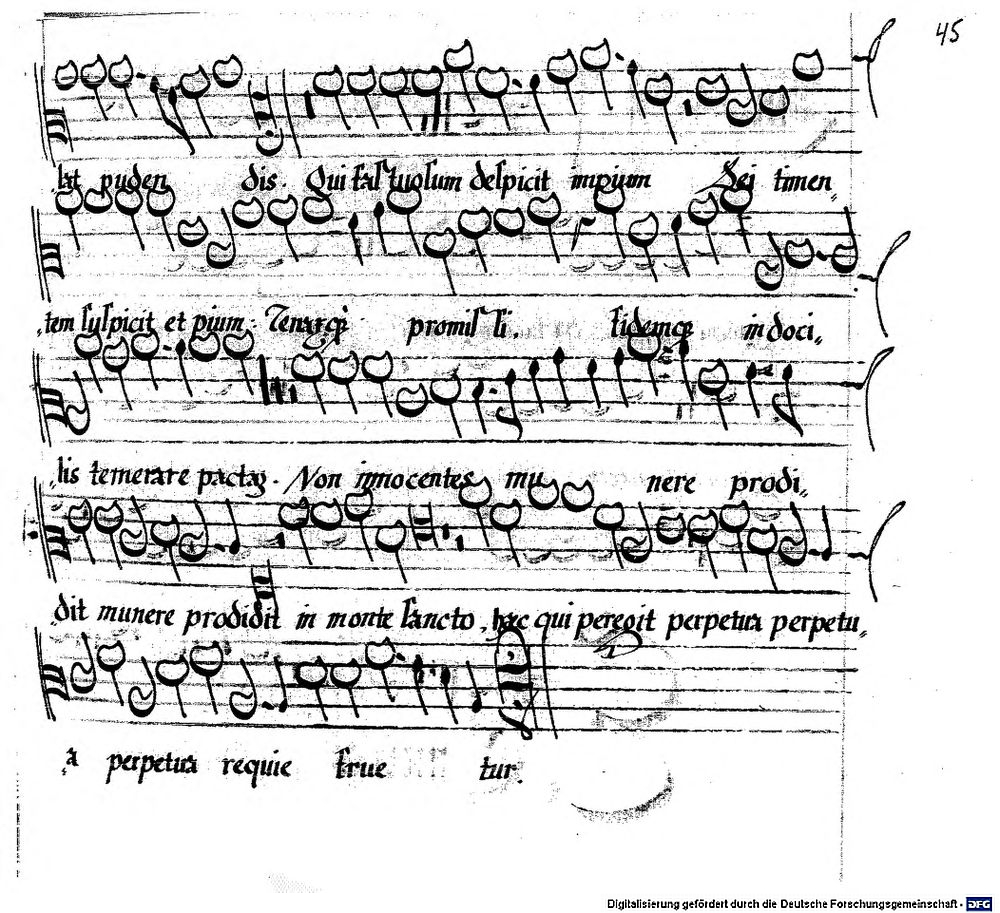 45
lat puden dis. Qui fastuosum despicit impium Dei timen„
„tem suspicit et pium. Tenaxq; promissi. fidemq; indoci„
„lis temerare pactaz. Non innocentes mu nere prodi„
„dit munere prodidit in monte sancto, hac qui peregit perpetua perpetu„
„a perpetua requie frue tur.
Digitalisierung gefördert durch die Deutsche Forschungsgemeinschaft - DFG